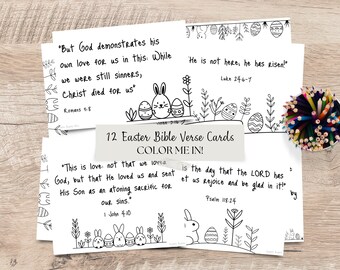 "But God demonstrates his
own love for us in this: While
we were still sinners,
Christ died for us"
Romans 5:8
He is not here; he has risen!"
Luke 24:6-7
12 Easter Bible Verse Cards
COLOR ME IN!
"This is love: not that we loved
God, but that He loved us and sent
His Son as an atoning sacrifice for
our sins."
1 John 4:10
is the day that the LORD has
let us rejoice and be glad in it!"
Psalm 118:24